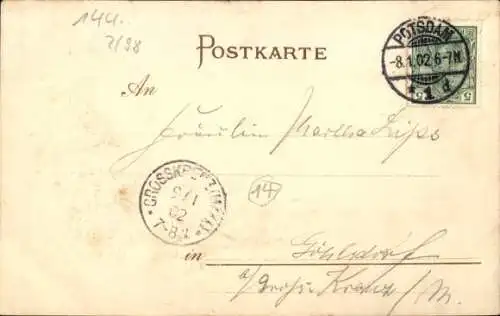 144.
2/98
POSTKARTE
POTSDAM
-8.1.02 6-7N.
* 1 d
5
An
Fräulein Martha Lips
GROSSKREUTZ (MARK)
9/1
02
7-8V.
14
in Göhlsdorf
b/Groß Kreuz /M.